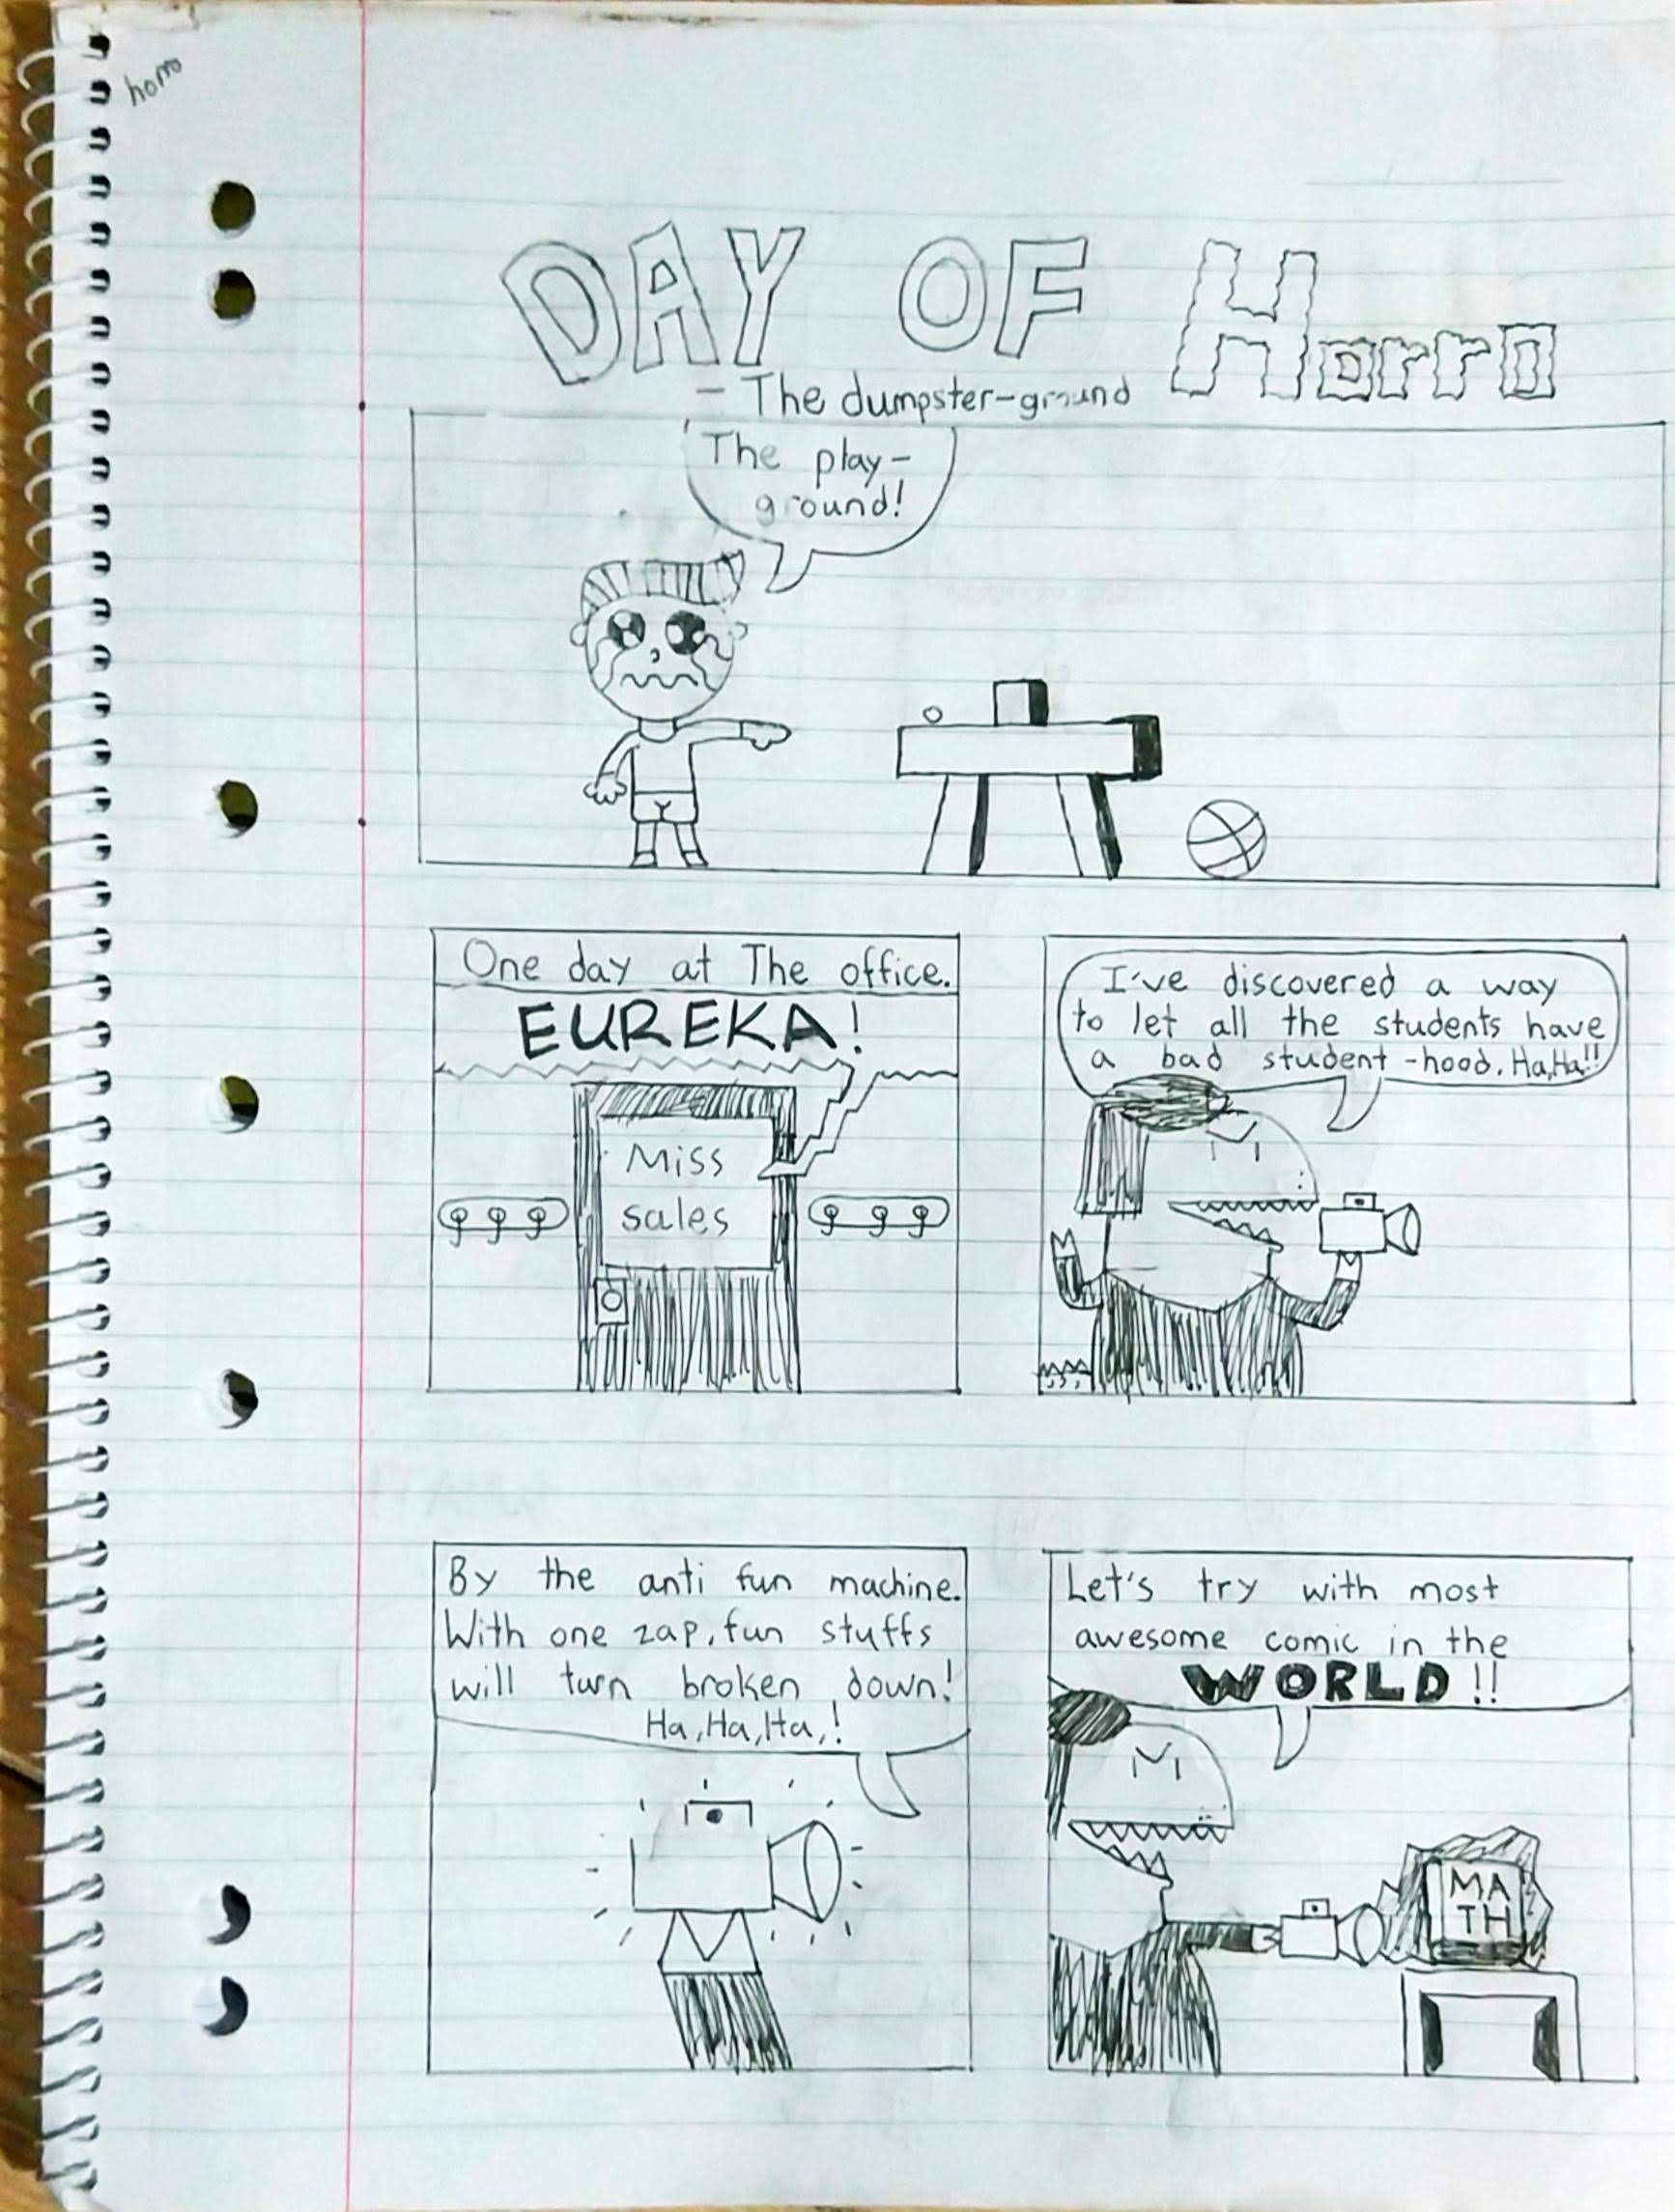 horro
DAY OF Horro
- The dumpster-ground
The play-
ground!
One day at The office.
EUREKA!
Miss
sales
I've discovered a way
to let all the students have
a bad student-hood. Ha,Ha!!
By the anti fun machine.
With one zap, fun stuffs
will turn broken down!
Ha, Ha, Ha,!
Let's try with most
awesome comic in the
WORLD!!
MA
TH